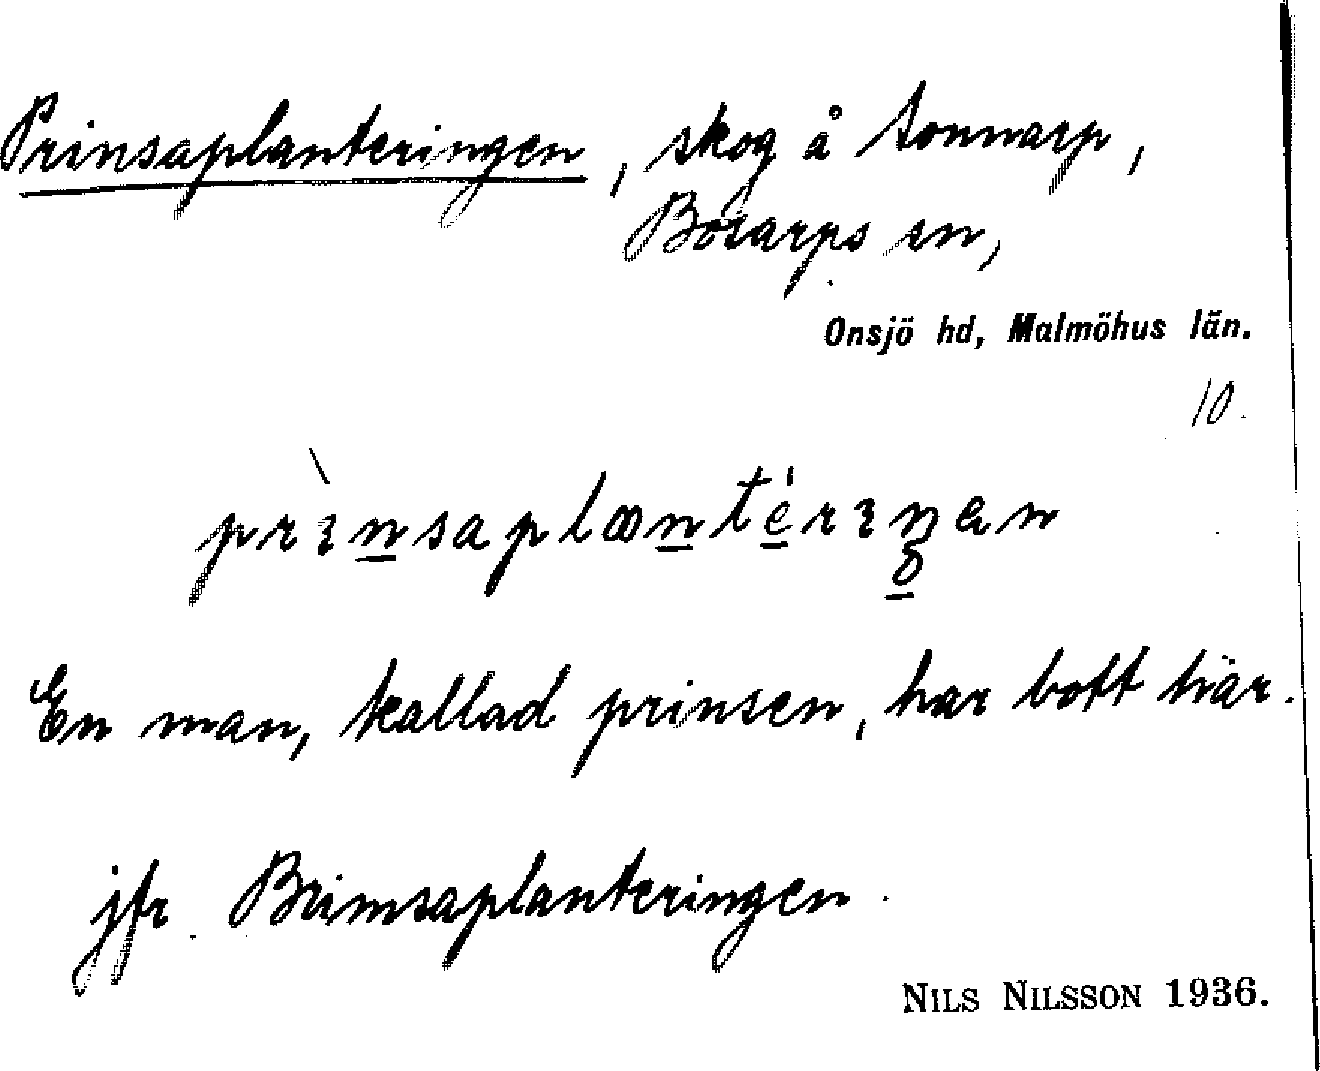 Prinsaplanteringen, skog å Tonnarp,
Bosarps sn,
Onsjö hd, Malmöhus län.
10.
En man, kallad prinsen, har bott här.
jfr. Brimsaplanteringen.
NILS NILSSON 1936.